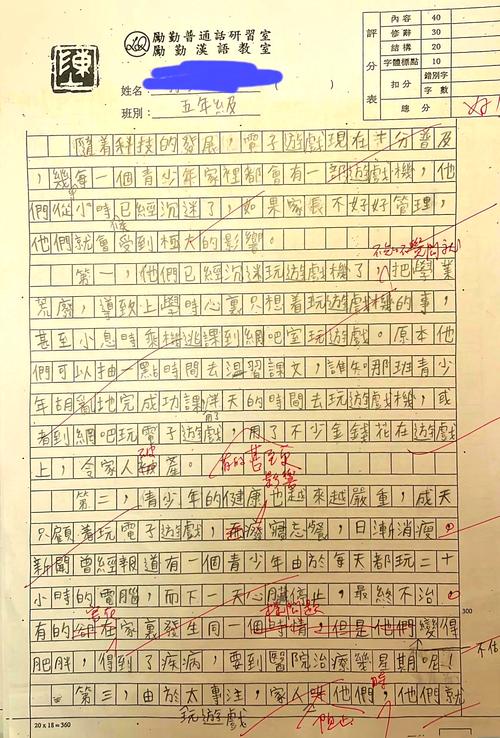 勵勤普通話研習室
勵勤漢語教室
姓名
班別: 五年級
評分表
內容 40
修辭 30
結構 20
字體標點 10
扣分 錯別字
字數
總分
隨着科技的發展,電子遊戲現在十分普及
,幾每一個青少年家裡都會有一部遊戲機,他
們從小時已經沉迷了,如果家長不好好管理,
他們就會受到極大的影響。
第一,他們已經沉迷玩遊戲機了,把學業
荒廢,導致上學時心裏只想着玩遊戲機的事,
甚至小息時乘機逃課到網吧室玩遊戲。原本他
們可以抽一點時間去溫習課文,誰知那班青少
年胡亂地完成功課,伴天的時間去玩遊戲機,或
用了
者到網吧玩電子遊戲,用了不少金錢花在遊戲
上,令家人破產。
有的甚至更
影響
第二,青少年的健康也越來越嚴重,成天
只顧着玩電子遊戲,廢寢忘餐,日漸消瘦。
新聞曾經報道有一個青少年由於每天都玩二十
小時的電腦,而下一天心臟停止,最終不治。
有的卻在家裏發生同一個事情,但是他們變得
肥胖,得到了疾病,要到醫院治療幾星期呢!
第三,由於太專注,家人
他們,他們就
時
玩遊戲
阻止
300
20 x 18 = 360